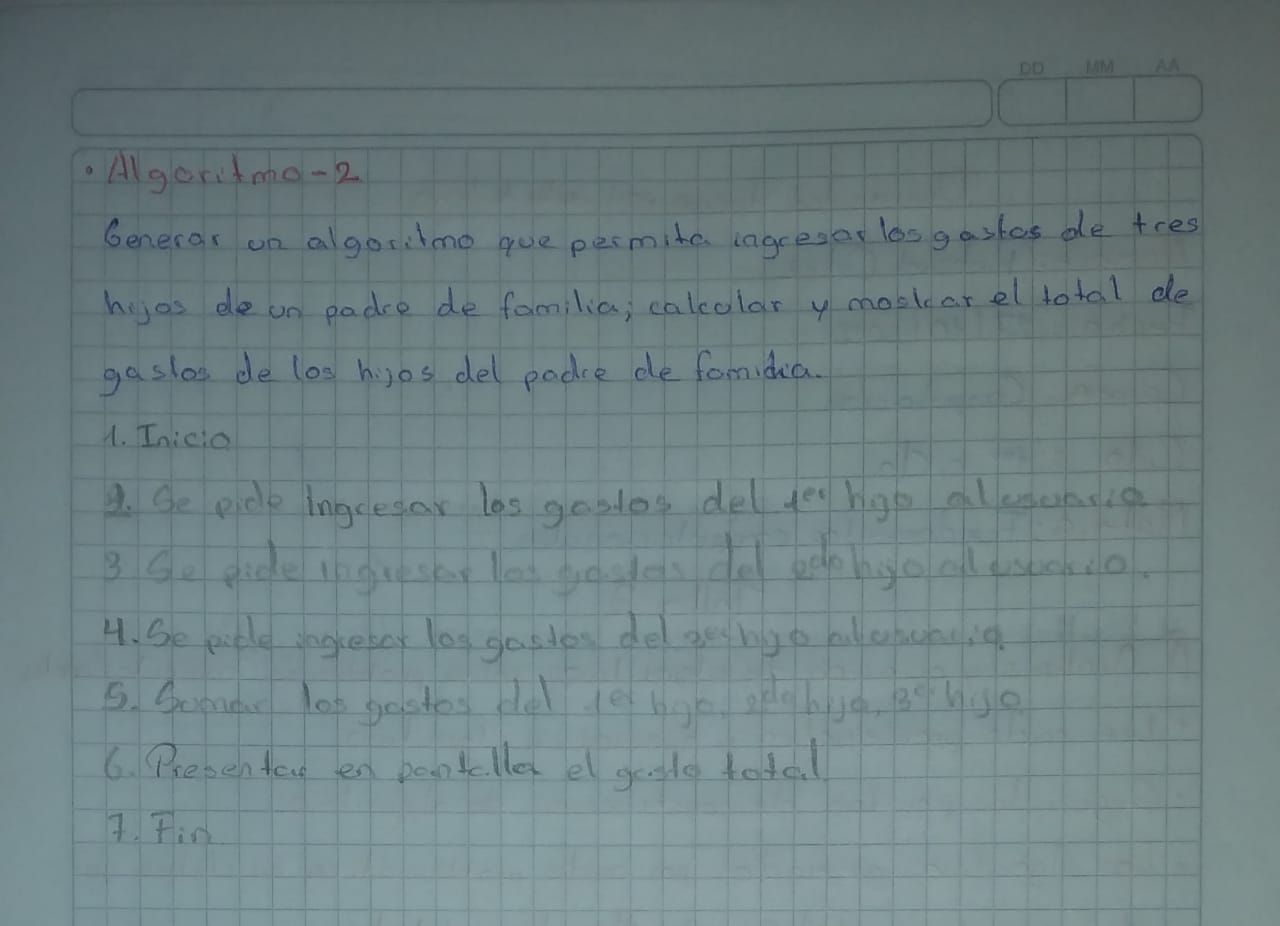 DD MM AA
• Algoritmo-2
Generar un algoritmo que permita ingresar los gastos de tres
hijos de un padre de familia; calcular y mostrar el total de
gastos de los hijos del padre de familia.
1. Inicio
2. Se pide Ingresar los gastos del 1er hijo al usuario
3 Se pide ingresar los gastos del 2do hijo al usuario.
4. Se pide ingresar los gastos del 3er hijo al usuario
5. Sumar los gastos del 1er hijo, 2do hijo, 3er hijo
6. Presentar en pantalla el gasto total
7. Fin